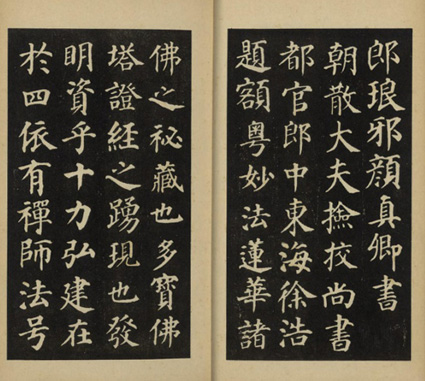 郎琅邪顔真卿書
朝散大夫撿挍尚書
都官郎中東海徐浩
題額粵妙法蓮華諸
佛之祕藏也多寶佛
塔證經之踴現也發
明資乎十力弘建在
於四依有禪師法号